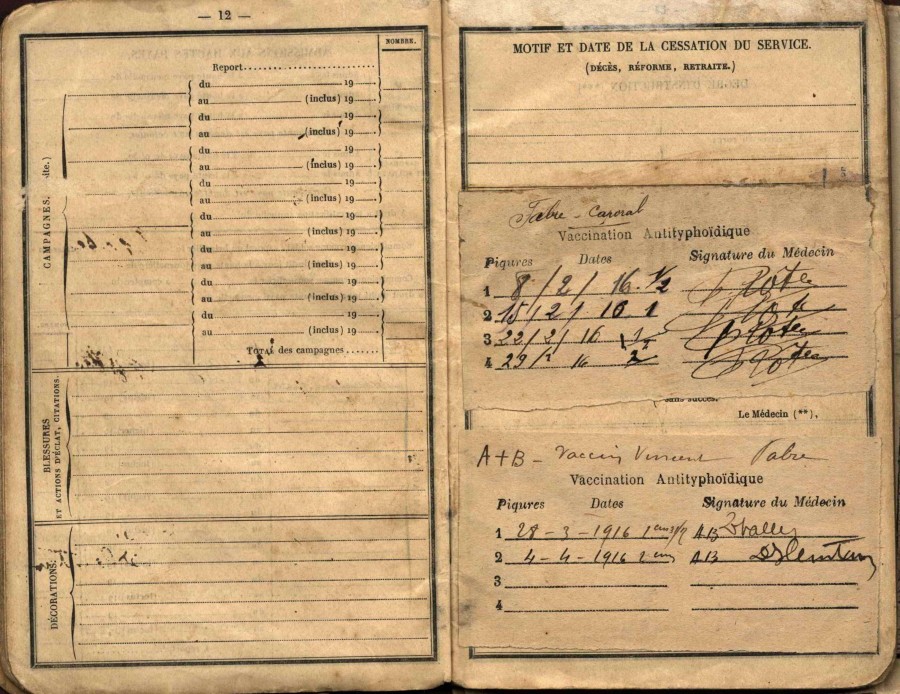 — 12 —
NOMBRE.
Report
CAMPAGNES.
ite.)
du 19
au (inclus) 19
du 19
au (inclus) 19
du 19
au (inclus) 19
du 19
au (inclus) 19
du 19
au (inclus) 19
du 19
au (inclus) 19
du 19
au (inclus) 19
du 19
au (inclus) 19
TOTAL des campagnes
BLESSURES
ET ACTIONS D'ÉCLAT, CITATIONS.
DÉCORATIONS.
MOTIF ET DATE DE LA CESSATION DU SERVICE.
(DÉCÈS, RÉFORME, RETRAITE.)
Fabre -
Vaccination Antityphoïdique
Piqures Dates Signature du Médecin
1 8/2/ 16 1/2
2 15/2/ 16 1
3 22/2/ 16
4 29/ 16
sans succès.
Le Médecin (**),
A+B - Vaccin Vincent Fabre
Vaccination Antityphoïdique
Piqures Dates Signature du Médecin
1 28-3-1916 AB
2 4-4-1916 AB
3
4